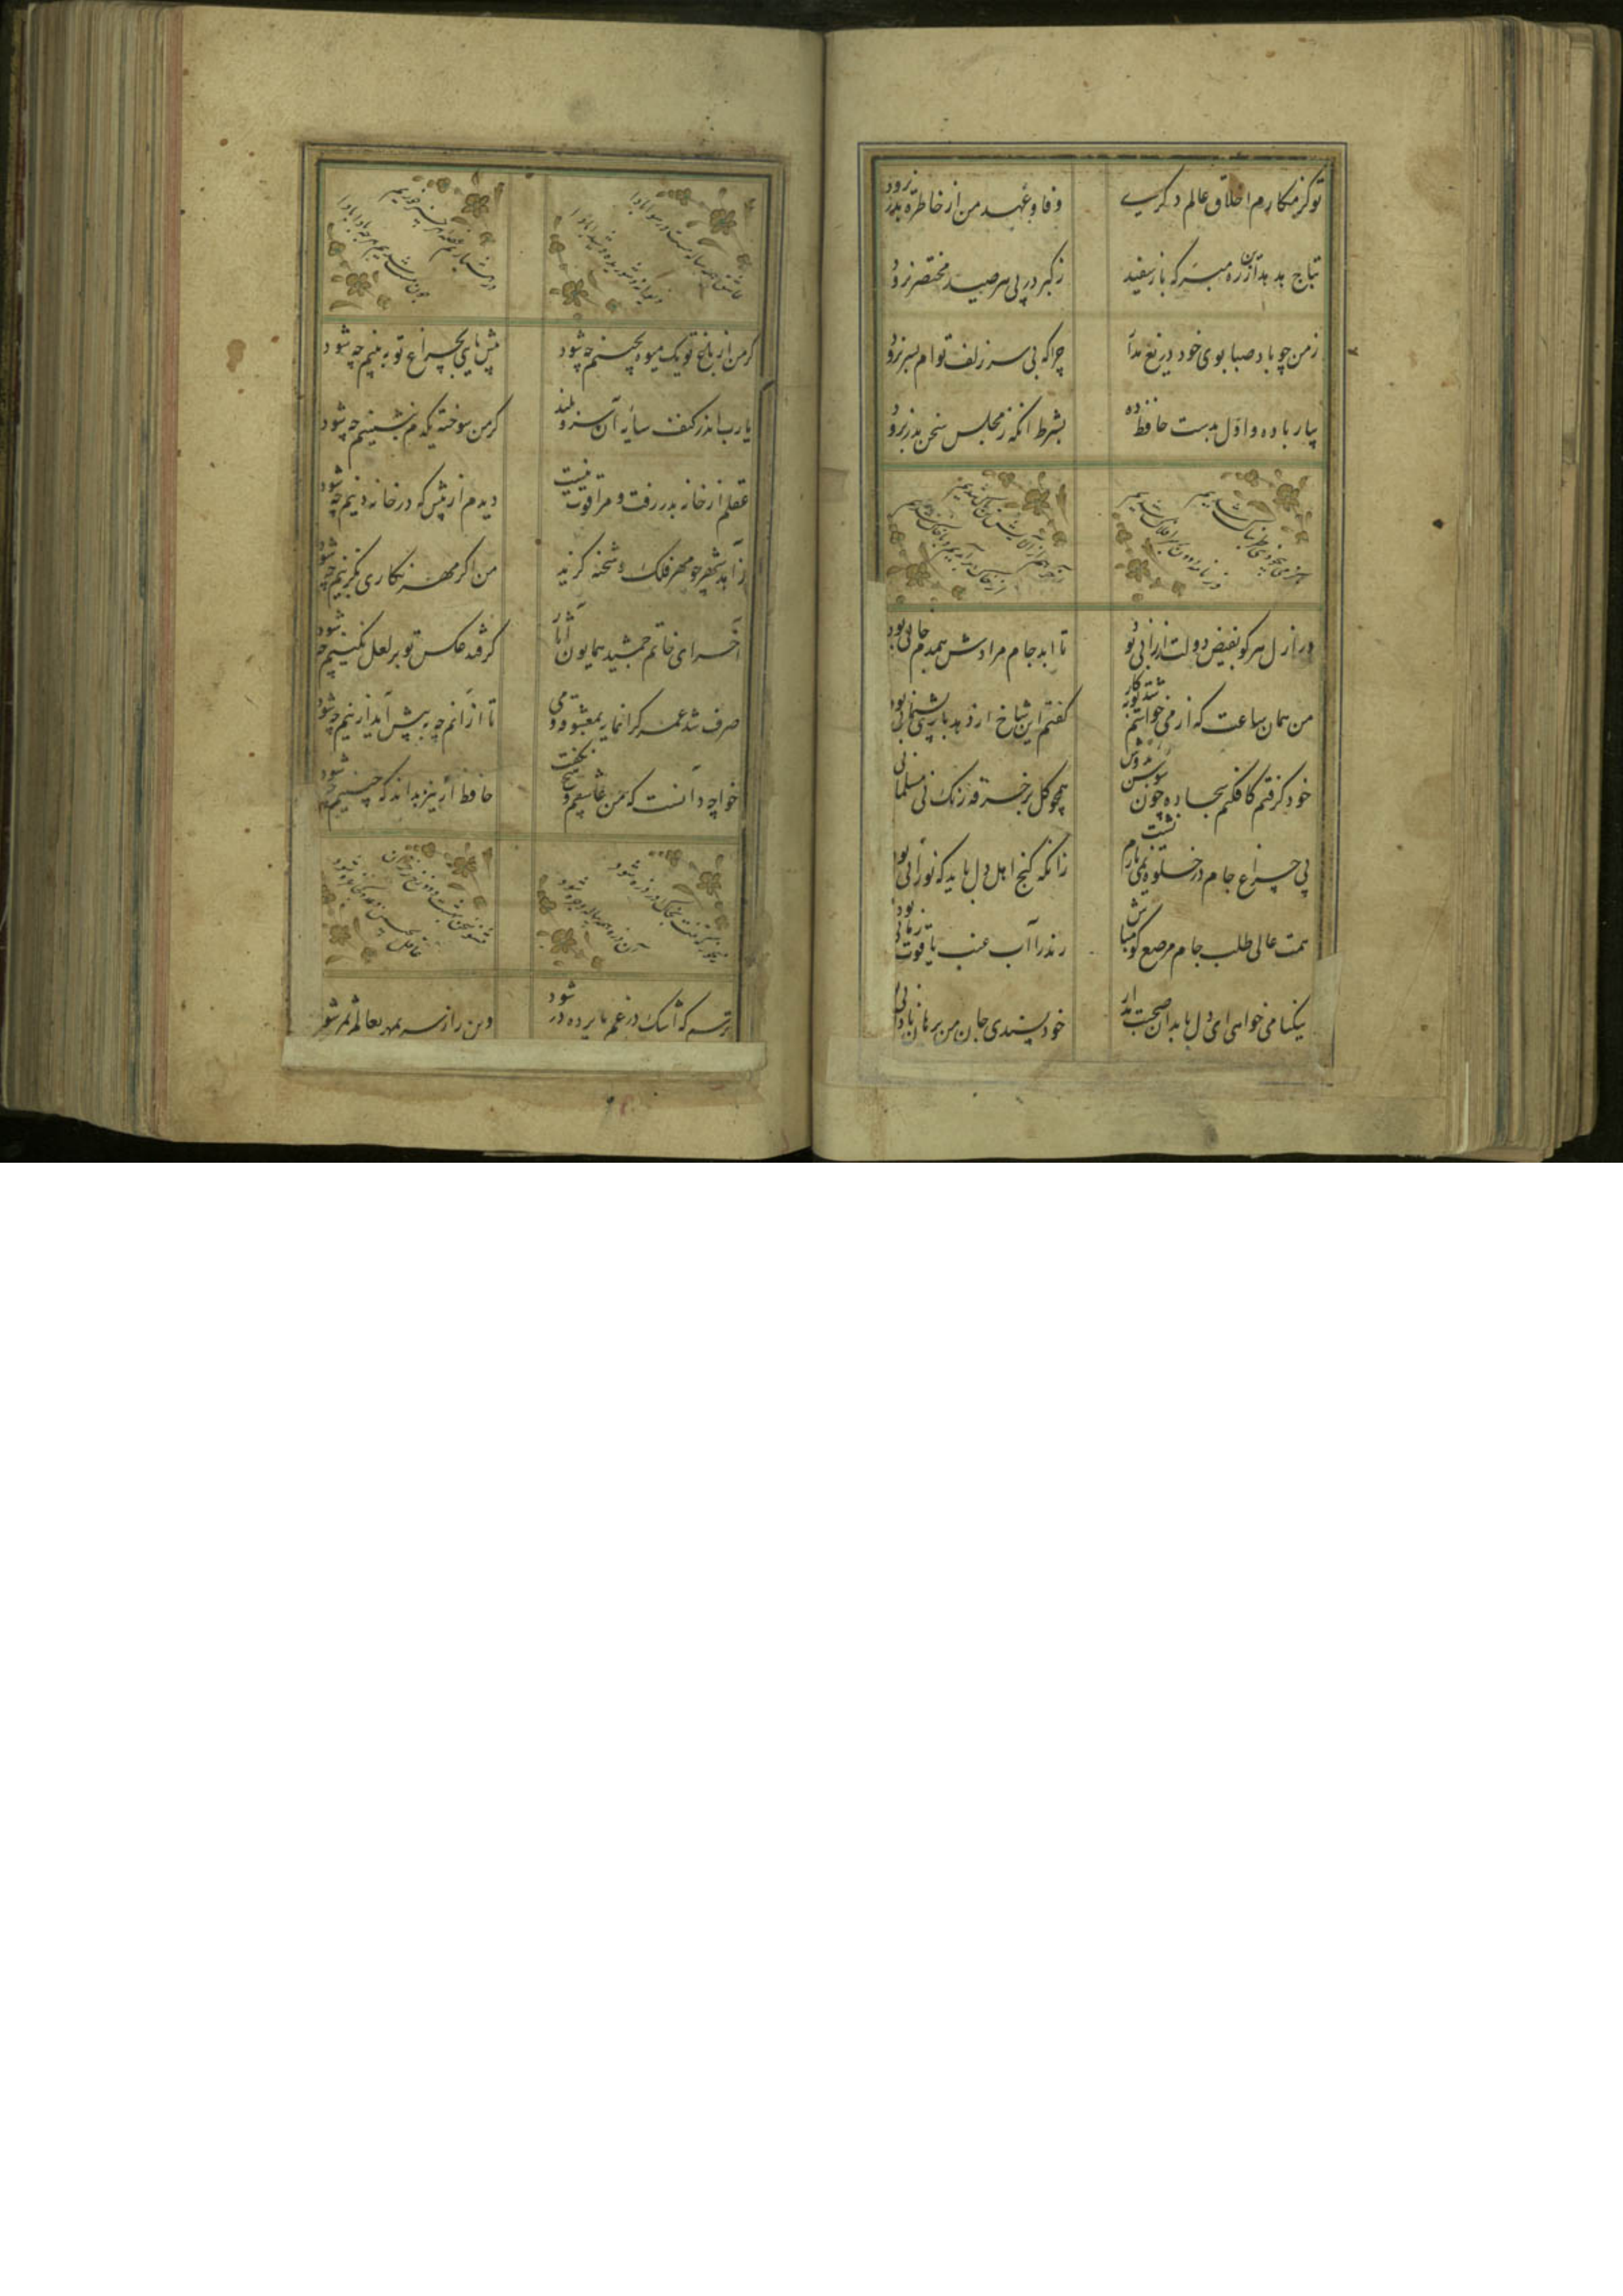 تو کز مکارم اخلاق عالم دگری وفا و عهد من از خاطرت بدر نرود
بتاج هدهدم از ره مبر که باز سفید ز کبر در پی هر صید مختصر نرود
ز من چو باد صبا بوی خود دریغ مدار چرا که بی سر زلف توام بسر نرود
بیار باده و اول بدست حافظ ده بشرط آنکه ز مجلس سخن بدر نرود
در ازل هر کو بفیض دولت ارزانی بود تا ابد جام مرادش همدم جانی بود
من همان ساعت که از می خواستم شد توبه کار گفتم این شاخ ار دهد باری پشیمانی بود
خود گرفتم کافکنم سجاده چون سوسن بدوش همچو گل بر خرقه رنگ می مسلمانی بود
بی چراغ جام در خلوت نمی یارم نشست زانکه کنج اهل دل باید که نورانی بود
همت عالی طلب جام مرصع گو مباش رند را آب عنب یاقوت رمانی بود
نیکنامی خواهی ای دل با بدان صحبت مدار خود پسندی جان من برهان نادانی بود
عاشق همه سال مست و رسوا بادا دیوانه و شوریده و شیدا بادا
در هشیاری غصه هر چیز خوریم چون مست شدیم هر چه بادا بادا
گر من از باغ تو یک میوه بچینم چه شود پیش پایی بچراغ تو ببینم چه شود
یا رب اندر کنف سایه آن سرو بلند گر من سوخته یکدم بنشینم چه شود
عقلم از خانه بدر رفت و مرا قوت نیست دیدم از پیش که در خانه دینم چه شود
زاهد شهر چو مهر ملک و شحنه گزید من اگر مهر نگاری بگزینم چه شود
آخر ای خاتم جمشید همایون آثار گر فتد عکس تو بر لعل نگینم چه شود
صرف شد عمر گرانمایه بمعشوق و می تا از آنم چه به پیش آید ازینم چه شود
خواجه دانست که من عاشقم و هیچ نگفت حافظ ار نیز بداند که چنینم چه شود
ترسم که اشک در غم ما پرده در شود وین راز سر بمهر بعالم سمر شود